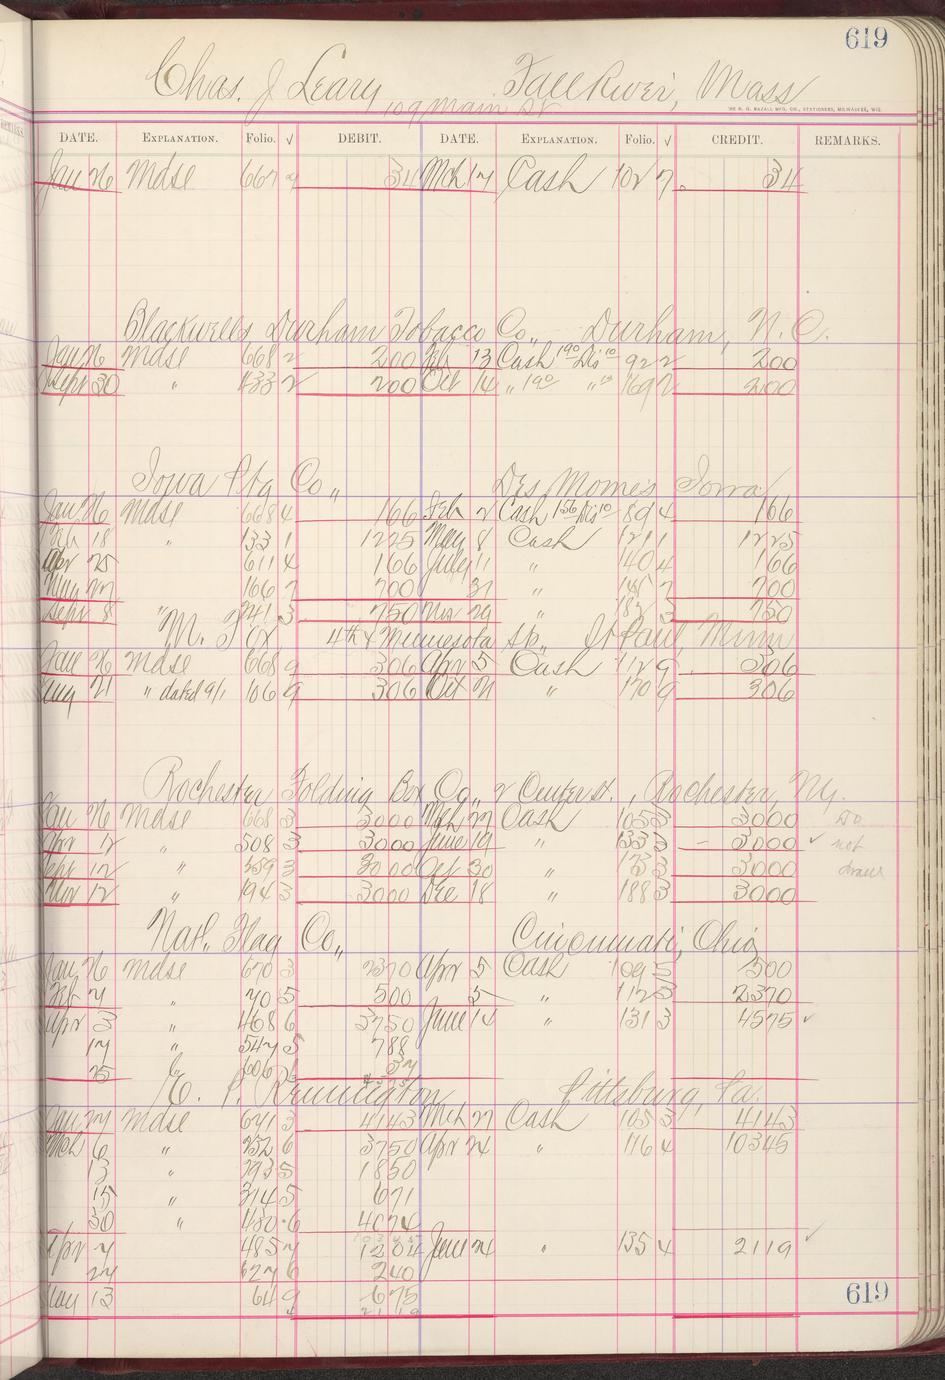 619
Chas. J Leary Fall River, Mass
109 Main St
DATE. EXPLANATION. Folio. √ DEBIT. DATE. EXPLANATION. Folio. √ CREDIT. REMARKS.
Jan 26 Mdse 667 9 34 Mch 17 Cash 102 7 34
Blackwells Durham Tobacco Co., Durham, N.C.
Jan 26 Mdse 668 2 200 Feb 13 Cash 190 Dis 10 92 2 200
Sept 30 " 133 2 200 Oct 14 " 190 " 10 169 2 200
Iowa Ptg Co., Des Moines Iowa
Jan 26 Mdse 668 4 166 Feb 2 Cash 156 Dis 10 89 4 166
Feb 18 " 133 1 1225 May 8 Cash 121 1 1225
Apr 25 611 4 166 July 11 " 140 4 166
Aug 22 106 7 700 31 " 7 700
Sept 8 " 241 3 750 Nov 29 " 182 3 750
4th & Minnesota Sts., St Paul, Minn
Jan 26 Mdse 668 9 306 Apr 5 Cash 112 9 306
Aug 21 " dated 9/1 106 9 306 Oct 21 " 170 9 306
Rochester Folding Box Co., 2 Center st., Rochester, N.Y.
Jan 26 Mdse 668 3 3000 Mch 27 Cash 105 3 3000 Do
Apr 12 " 508 3 3000 June 19 " 133 3 3000 √ not
Sept 12 " 259 3 3000 Oct 30 " 173 3 3000 draw
Nov 12 " 194 3 3000 Dec 18 " 188 3 3000
Nat. Flag Co., Cincinnati, Ohio
Jan 26 Mdse 670 3 2370 Apr 5 Cash 109 5 500
Feb 7 " 70 5 500 5 " 112 3 2370
Apr 3 " 468 6 3750 June 14 " 131 3 4575 √
17 " 547 5 788
25 606 37
4575
C. P. Remington Pittsburg, Pa.
Jan 27 Mdse 671 3 4143 Mch 27 Cash 105 3 4143
Mch 6 " 232 6 3750 Apr 24 " 116 4 10345
13 " 293 5 1850
15 " 314 5 671
30 " 430 6 4074
10345
Apr 7 485 7 1204 June 24 " 135 4 2119 √
27 627 6 240
May 13 64 9 675
2119
619